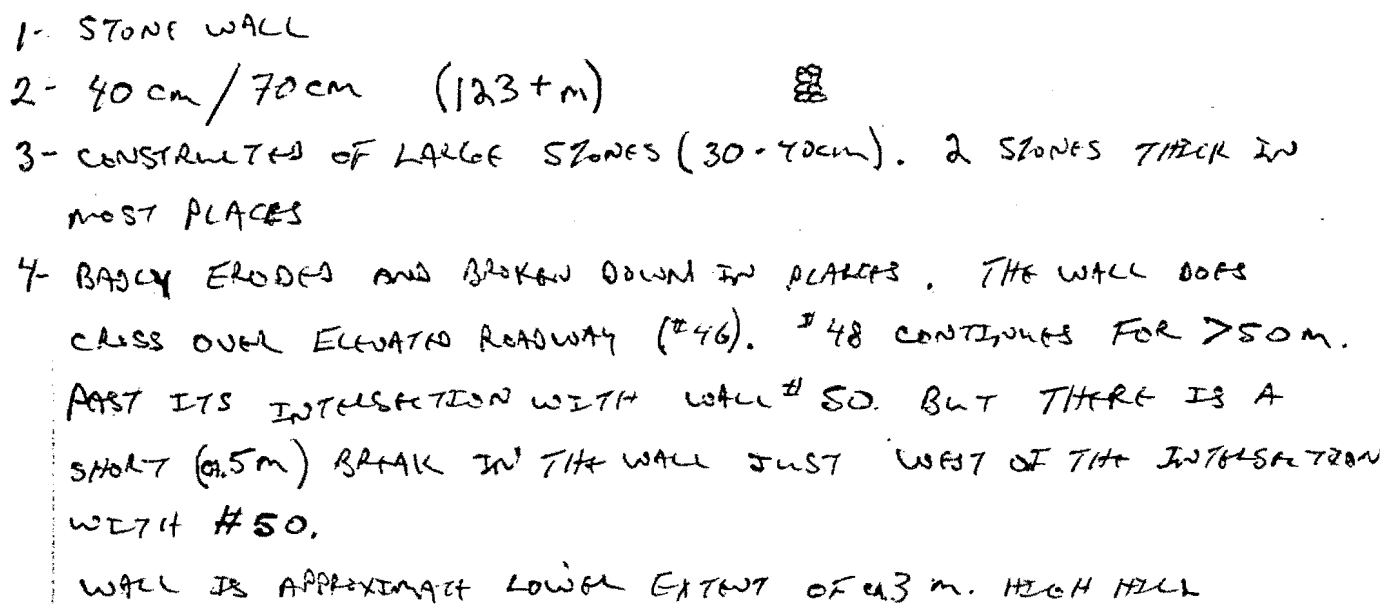 1- STONE WALL
2- 40 cm/70cm (123+m)
3- CONSTRUCTED OF LARGE STONES (30-40cm). 2 STONES THICK IN
MOST PLACES
4- BADLY ERODED AND BROKEN DOWN IN PLACES. THE WALL DOES
CROSS OVER ELEVATED ROADWAY (#46). #48 CONTINUES FOR >50m.
PAST ITS INTERSECTION WITH WALL #50. BUT THERE IS A
SHORT (ca.5m) BREAK IN THE WALL JUST WEST OF THE INTERSECTION
WITH #50.
WALL IS APPROXIMATE LOWER EXTENT OF ca 3 m. HIGH HILL